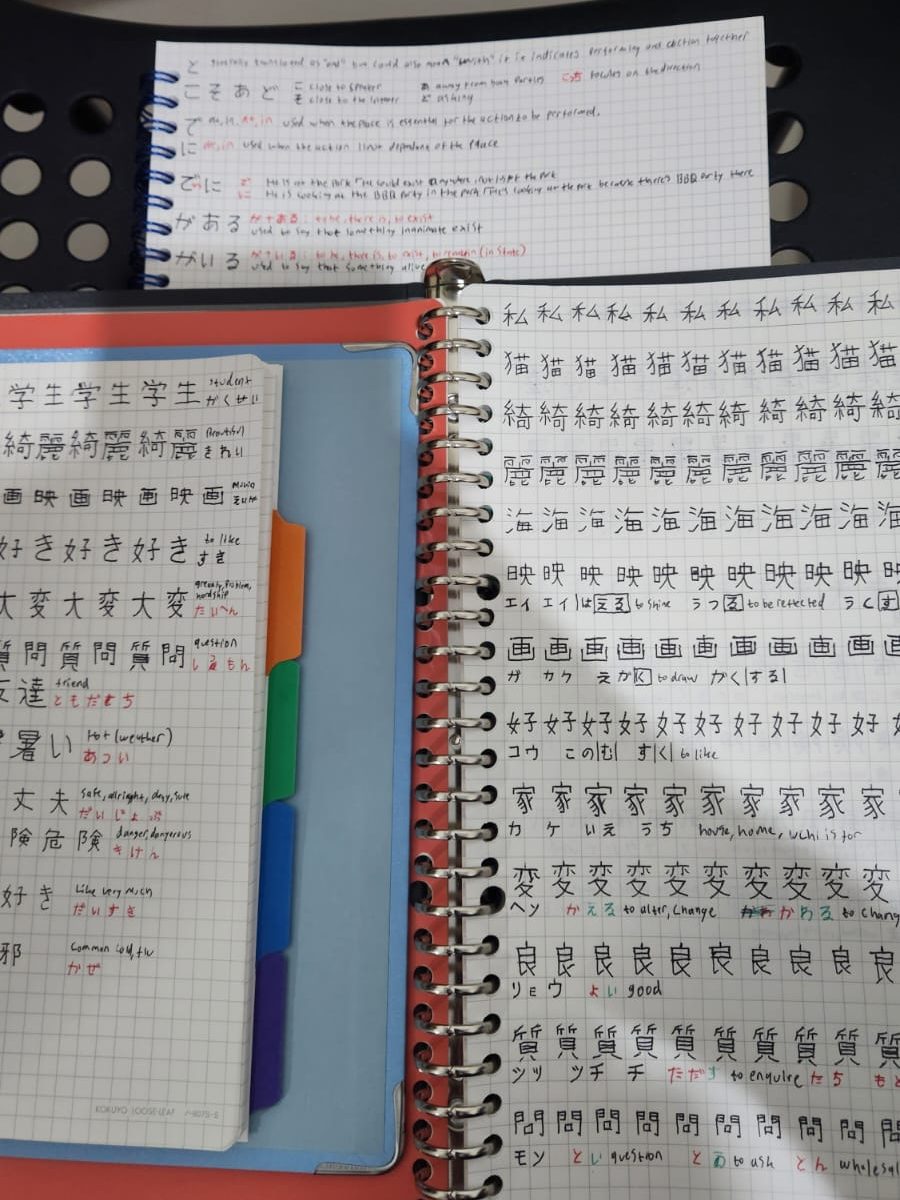 と generally translated as "and" but could also mean "with" it indicates performing and action together
こそあど こ close to speaker あ away from both parties こっち focuses on the direction
そ close to the listener ど asking
で at, in, used when the place is essential for the action to be performed.
に at, in used when the action isn't dependent of the place
でvsに で He is at the park
に He is looking at the BBQ party in the park because there's BBQ party there
がある が+ある: to be, there is, to exist
used to say that something inanimate exist
がいる が+いる: to be, there is, to exist, to remain (in state)
used to say that something alive
学生学生学生 student
がくせい
綺麗綺麗綺麗 Beautiful
きれい
画映画映画映画 movie
好き好き好き to like
すき
大変大変大変 hardship
たいへん
質問質問質問 question
しつもん
友達 friend
ともだち
暑い Hot (weather)
あつい
丈夫 safe, alright, okay, sure
だいじょぶ
険危険 danger, dangerous
きけん
好き Like very much
だいすき
邪 Common cold, flu
かぜ
KOKUYO LOOSE-LEAF
私私私私私私私私私私私
猫猫猫猫猫猫猫猫猫猫猫
綺綺綺綺綺綺綺綺綺綺綺
麗麗麗麗麗麗麗麗麗麗麗
海海海海海海海海海海海
映映映映映映映映映映映
エイ エイ は える to shine うつ る to be reflected うく す
画画画画画画画画画画画
ガ カク えが く to draw かく する
好好好好好好好好好好好
コウ この む す く to like
家家家家家家家家家家
カ ケ いえ うち house, home, uchi is for
変変変変変変変変変変
ヘン かえる to alter, change かわる to chang
良良良良良良良良良良
リョウ よい good
質質質質質質質質質質
シツ シチ チ ただす to enquire たち もと
問問問問問問問問問問
モン とい question とあ to ask とん wholesal